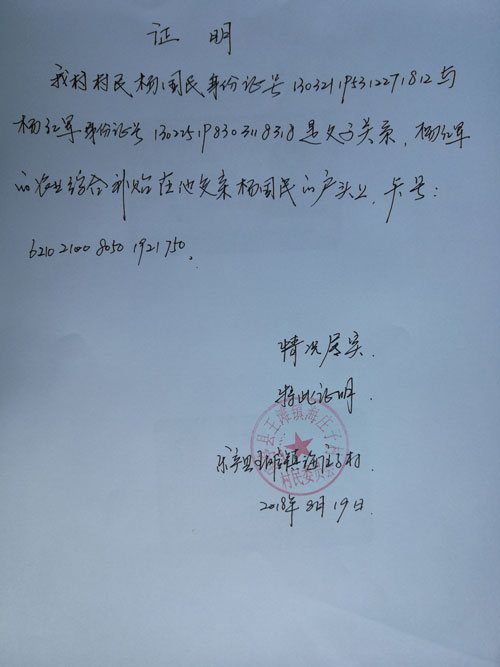 证 明
我村村民杨国民身份证号130321195312271812与
杨红军身份证号130225198303118318是父子关系，杨红军
的农业综合补贴在他父亲杨国民的户头上，卡号：
6210 2100 8050 1921 750。
情况属实．
特此证明
县王滩镇海庄子
村民委员会
乐亭县王滩镇海庄子村
2018年8月19日．